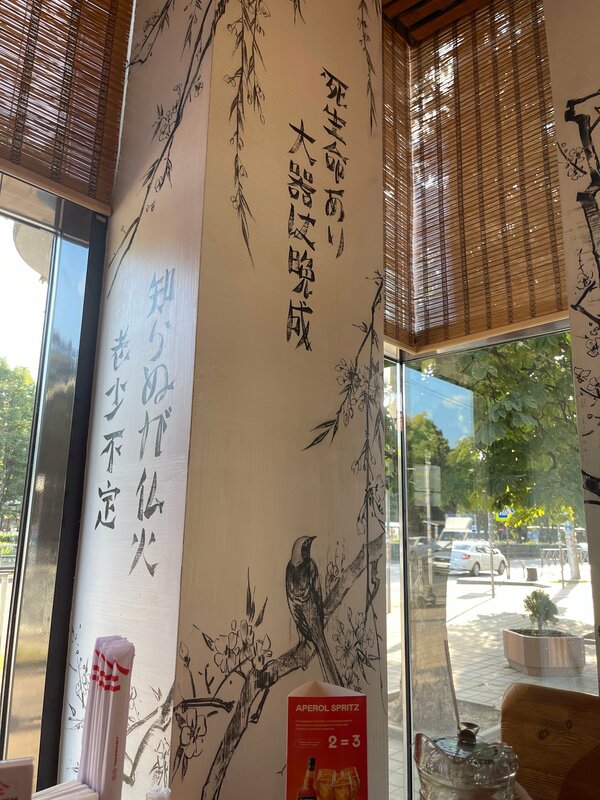 死生命あり
大器は晩成
知らぬが仏火
老少不定
APEROL SPRITZ
2 = 3